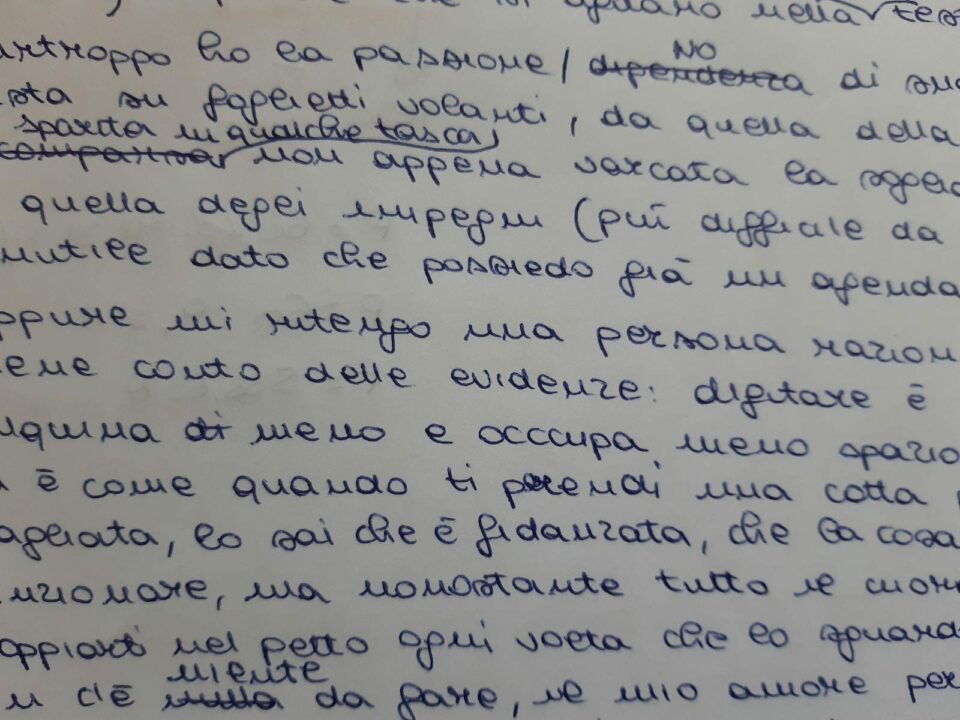 che si nella tes
NO
urtroppo ho la passione / dipendenza di
sta su foglietti volanti, da quella della
sparita in qualche tasca)
non appena varcata la sogli
quella degli impegni (più difficile da
inutile dato che possiedo già un agenda
ppure mi ritengo una persona razion
iene conto delle evidenze: digitare è
nquina di meno e occupa meno spazio
è come quando ti prendi una cotta
agliata, lo sai che è fidanzata, che la cosa
nzionare, ma nonostante tutto il cuor
oppiarti nel petto ogni volta che lo sguard
niente
n c'è nulla da fare, il mio amore per